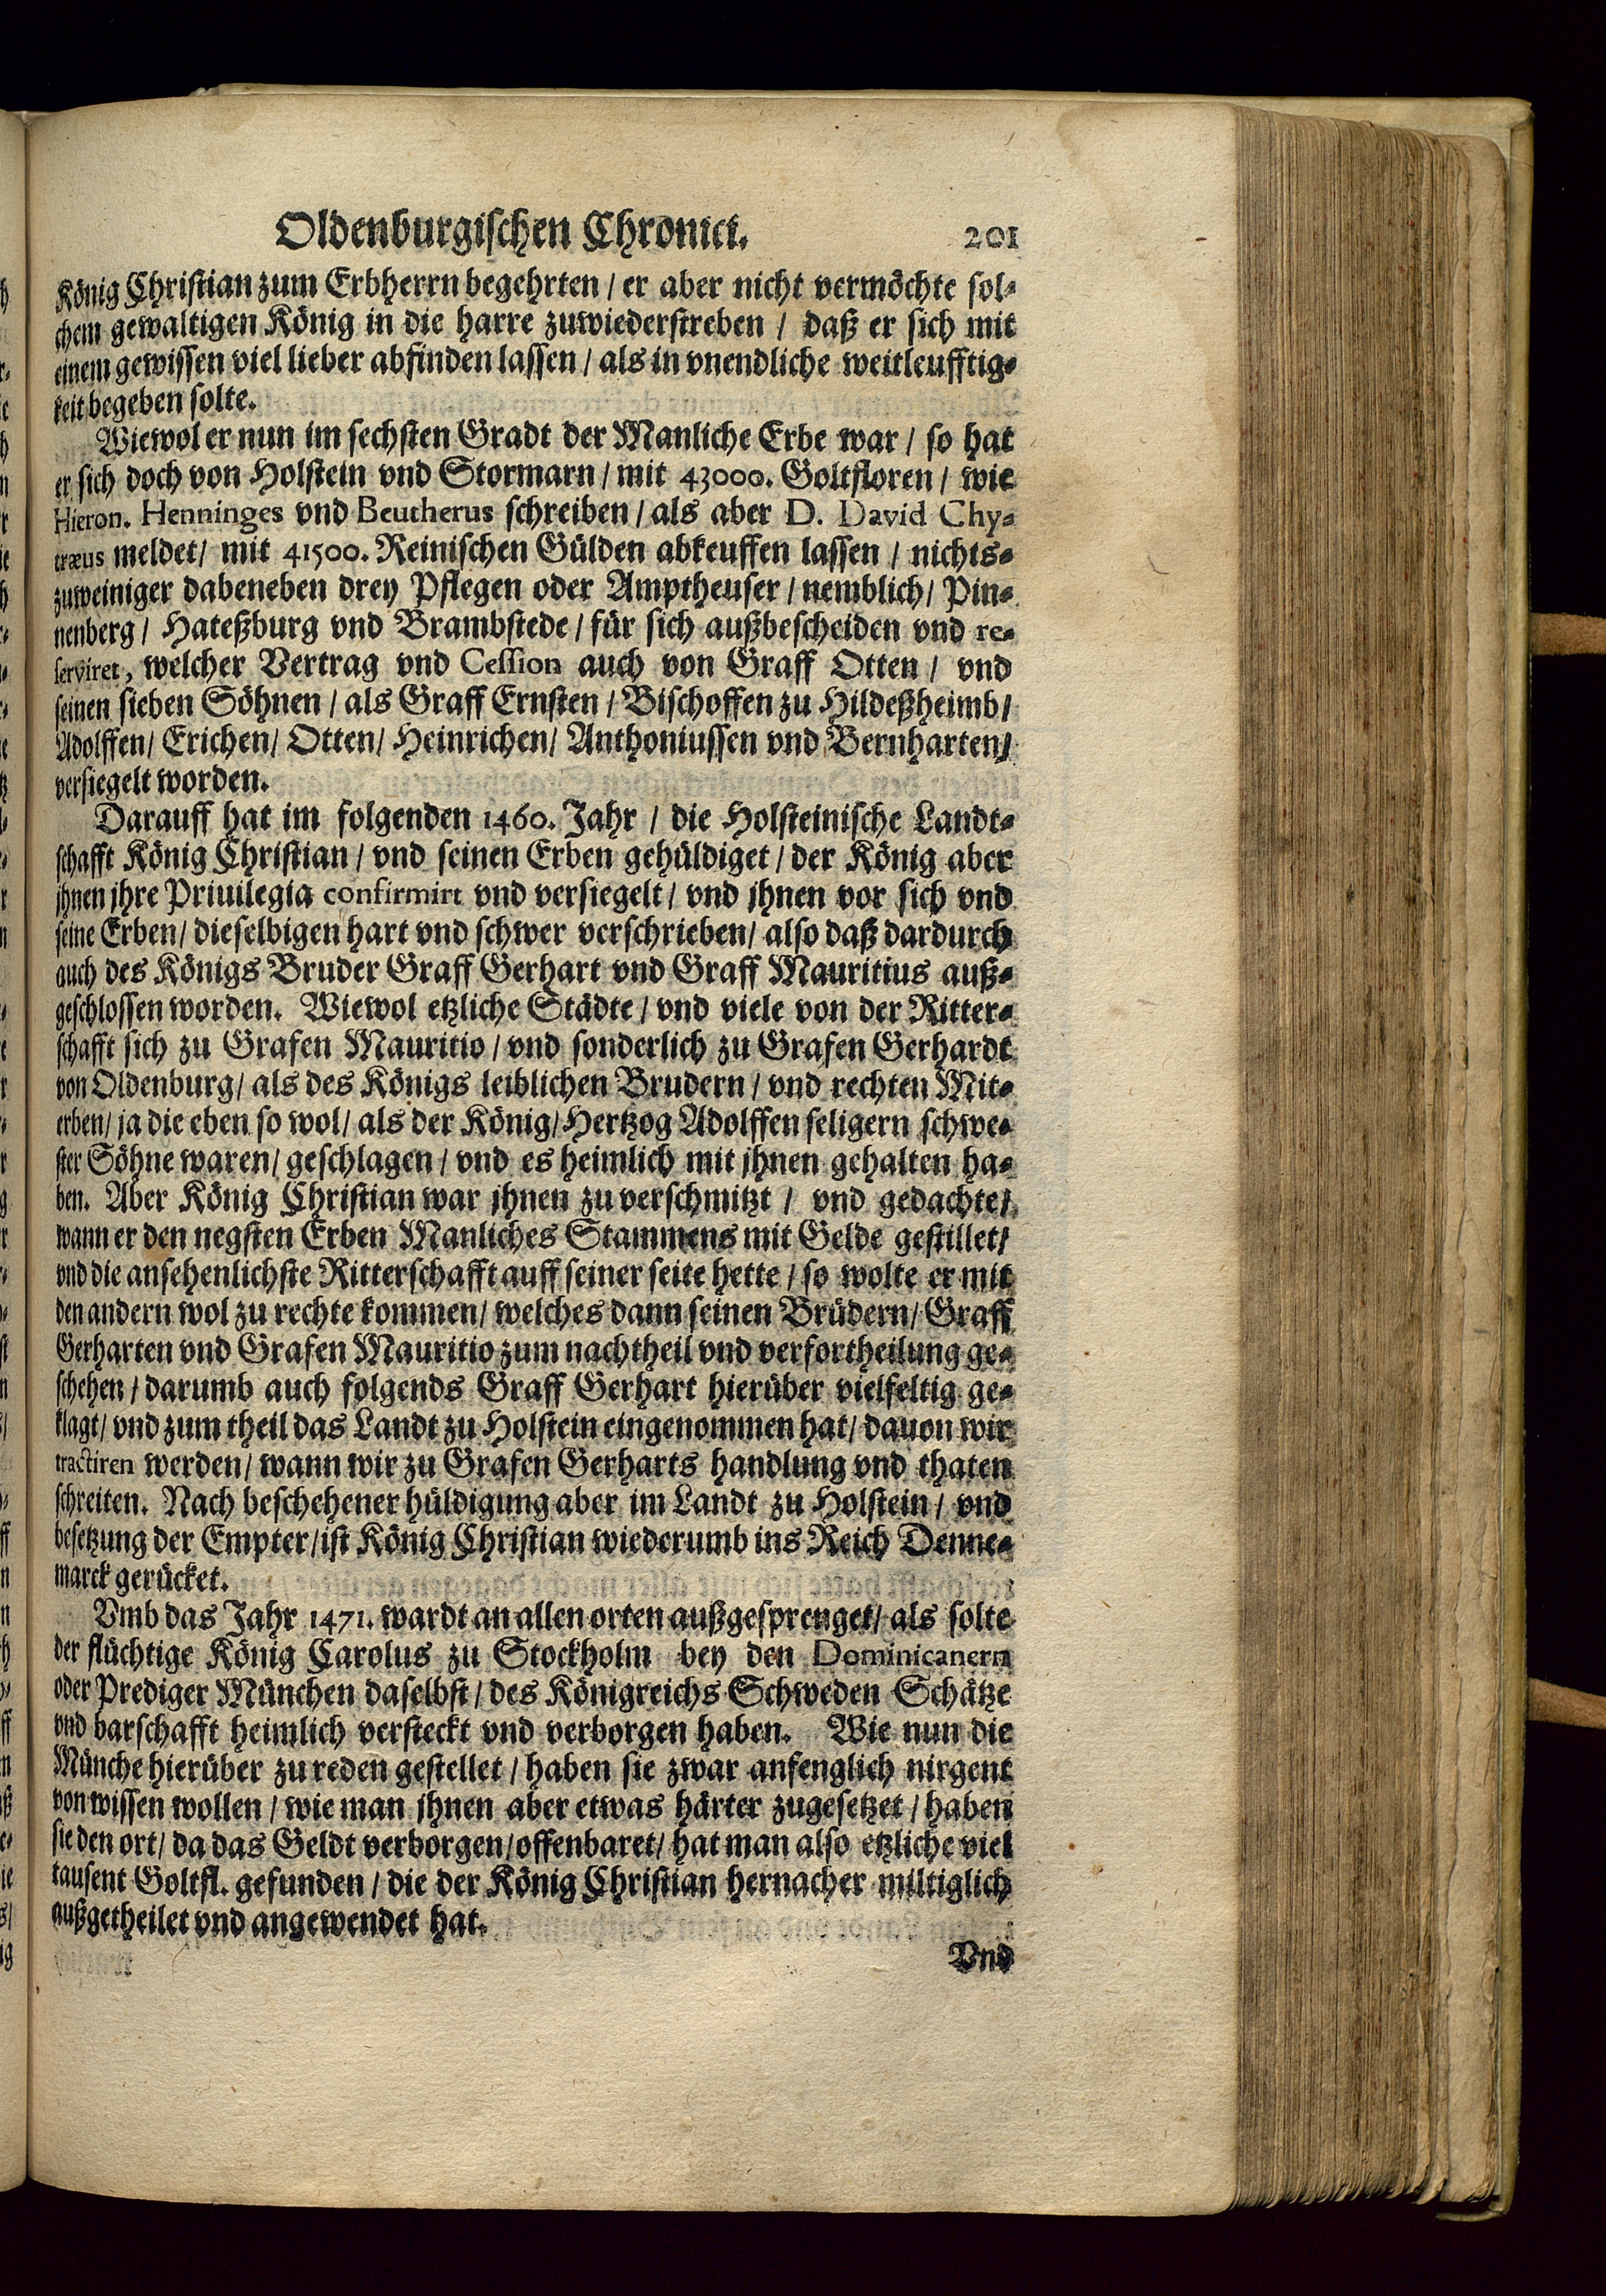 Oldenburgischen Chronici. 201
König Christian zum Erbherrn begehrten / er aber nicht vermöchte sol-
chem gewaltigen König in die harre zuwiederstreben / daß er sich mit
einem gewissen viel lieber abfinden lassen / als in vnendliche weitleufftig-
keit begeben solte.
Wiewol er nun im sechsten Gradt der Manliche Erbe war / so hat
er sich doch von Holstein vnd Stormarn / mit 43000. Goltfloren / wie
Hieron. Henninges vnd Beutherus schreiben / als aber D. David Chy-
træus meldet / mit 41500. Reinischen Gülden abkeuffen lassen / nichts-
zuweiniger dabeneben drey Pflegen oder Amptheuser / nemblich / Pin-
nenberg / Hateßburg vnd Brambstede / für sich außbescheiden vnd re-
serviret, welcher Vertrag vnd Cession auch von Graff Otten / vnd
seinen sieben Söhnen / als Graff Ernsten / Bischoffen zu Hildeßheimb /
Adolffen / Erichen / Otten / Heinrichen / Anthoniussen vnd Bernharten /
versiegelt worden.
Darauff hat im folgenden 1460. Jahr / die Holsteinische Landt-
schafft König Christian / vnd seinen Erben gehüldiget / der König aber
jhnen jhre Priuilegia confirmirt vnd versiegelt / vnd jhnen vor sich vnd
seine Erben / dieselbigen hart vnd schwer verschrieben / also daß dardurch
auch des Königs Bruder Graff Gerhart vnd Graff Mauritius auß-
geschlossen worden. Wiewol etzliche Städte / vnd viele von der Ritter-
schafft sich zu Grafen Mauritio / vnd sonderlich zu Grafen Gerhardt
von Oldenburg / als des Königs leiblichen Brudern / vnd rechten Mit-
erben / ja die eben so wol / als der König / Hertzog Adolffen seligern schwe-
ster Söhne waren / geschlagen / vnd es heimlich mit jhnen gehalten ha-
ben. Aber König Christian war jhnen zu verschmitzt / vnd gedachte /
wann er den negsten Erben Manliches Stammens mit Gelde gestillet /
vnd die ansehenlichste Ritterschafft auff seiner seite hette / so wolte er mit
den andern wol zu rechte kommen / welches dann seinen Brüdern / Graff
Gerharten vnd Grafen Mauritio zum nachtheil vnd verfortheilung ge-
schehen / darumb auch folgends Graff Gerhart hierüber vielfeltig ge-
klagt / vnd zum theil das Landt zu Holstein eingenommen hat / dauon wir
tractiren werden / wann wir zu Grafen Gerharts handlung vnd thaten
schreiten. Nach beschehener hüldigung aber im Landt zu Holstein / vnd
besetzung der Empter / ist König Christian wiederumb ins Reich Denne-
marck gerücket.
Vmb das Jahr 1471. wardt an allen orten außgesprenget / als solte
der flüchtige König Carolus zu Stockholm bey den Dominicanern
oder Prediger München daselbst / des Königreichs Schweden Schätze
vnd barschafft heimlich versteckt vnd verborgen haben. Wie nun die
Münche hierüber zu reden gestellet / haben sie zwar anfenglich nirgent
von wissen wollen / wie man jhnen aber etwas härter zugesetzet / haben
sie den ort / da das Geldt verborgen / offenbaret / hat man also etzliche viel
tausent Goltfl. gefunden / die der König Christian hernacher miltiglich
außgetheilet vnd angewendet hat.
Vnd